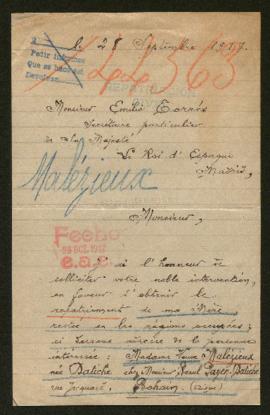 le 28 Septembre 1917.
144563
Pedir Informes
Que se haga
Monsieur Emilio Torrés
Secrétaire particulier
de Sa Majesté
Le Roi d'Espagne
Madrid
Malézieux
Monsieur,
Fecho
OCT. 1917
e.a.
J'ai l'honneur de
solliciter votre noble intervention,
en faveur d'obtenir le
rapatriement de ma Mère,
restée en les régions occupées;
ci dessous adresse de la personne
intéressée: Madame Veuve Malézieux
née Daliche chez Monsieur
rue Jacquard. Bohain (Aisne)